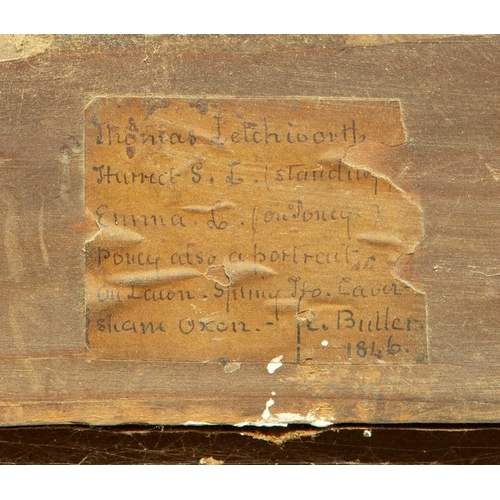 Thomas Letchworth
Harriet S. L. (standing)
Emma. L. (on Poney.)
Poney also a portrait
on Lawn. Spring Ho. Caver-
sham Oxon. - C. Butler
1846.